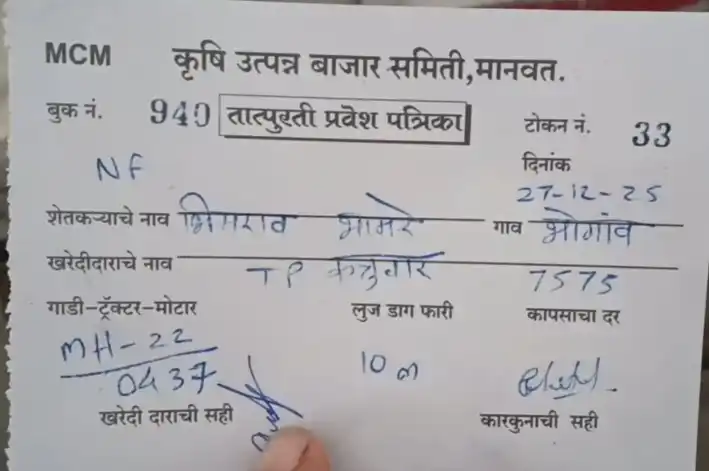 MCM कृषि उत्पन्न बाजार समिती,मानवत.
बुक नं. 940 तात्पुरती प्रवेश पत्रिका टोकन नं. 33
NF दिनांक
27-12-25
शेतकऱ्याचे नाव भिमराव भामरे गाव भोगांव
खरेदीदाराचे नाव TP 7575
गाडी-ट्रॅक्टर-मोटार लुज डाग फारी कापसाचा दर
MH-22
0437 10
खरेदी दाराची सही कारकुनाची सही